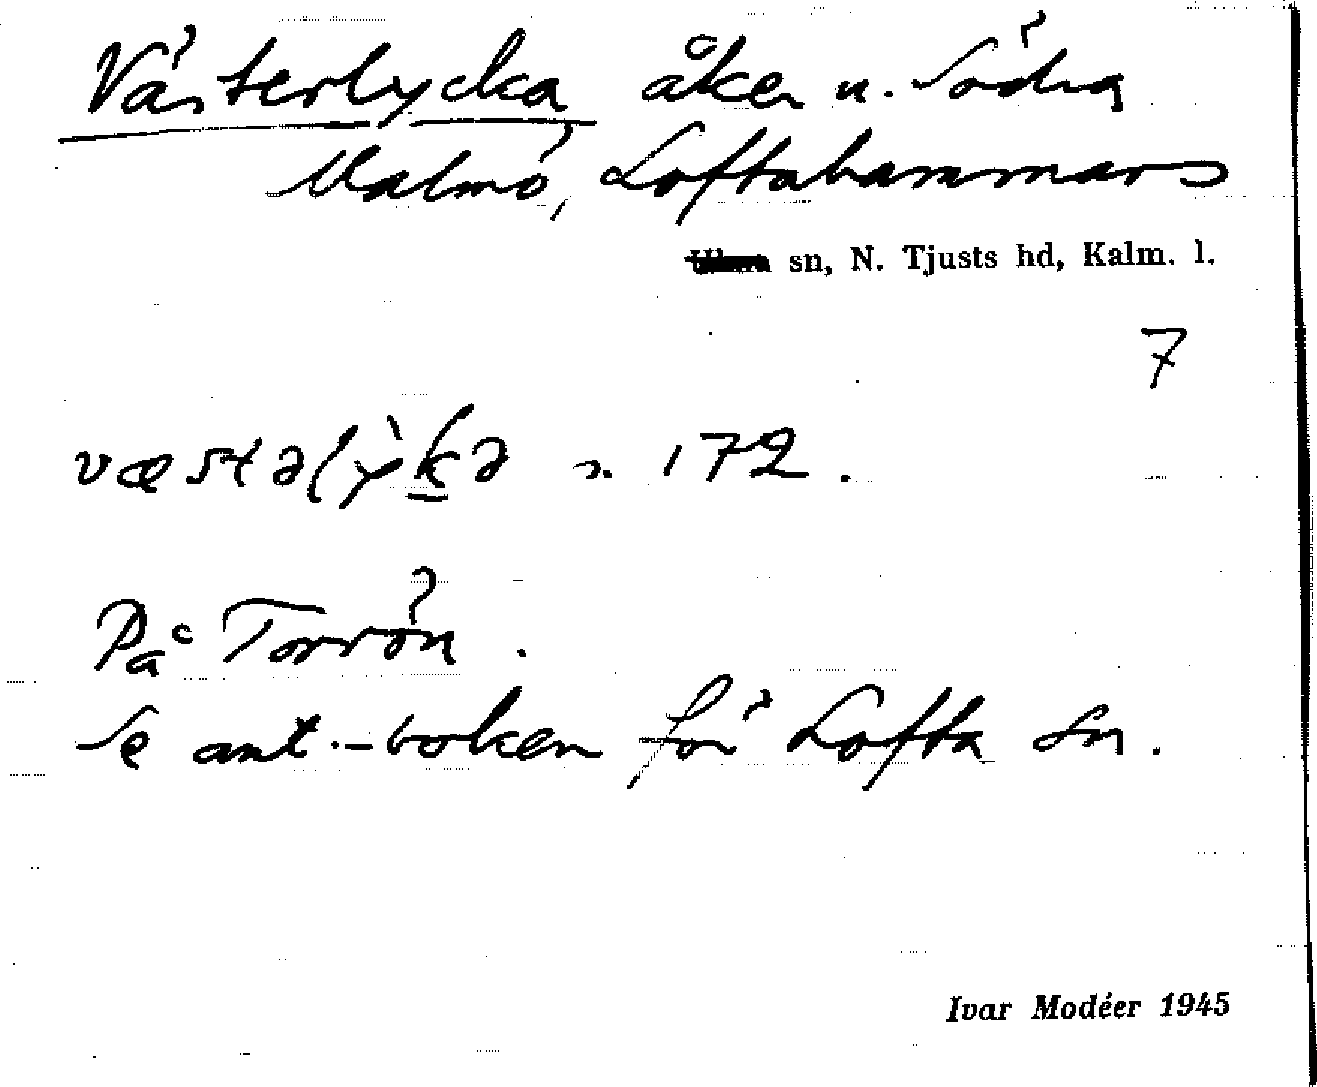 Västerlycka åker u. Södra
Malmö, Loftahammars
sn, N. Tjusts hd, Kalm. l.
7
172.
På Torrön.
Se ant.-boken för Lofta sn.
Ivar Modéer 1945